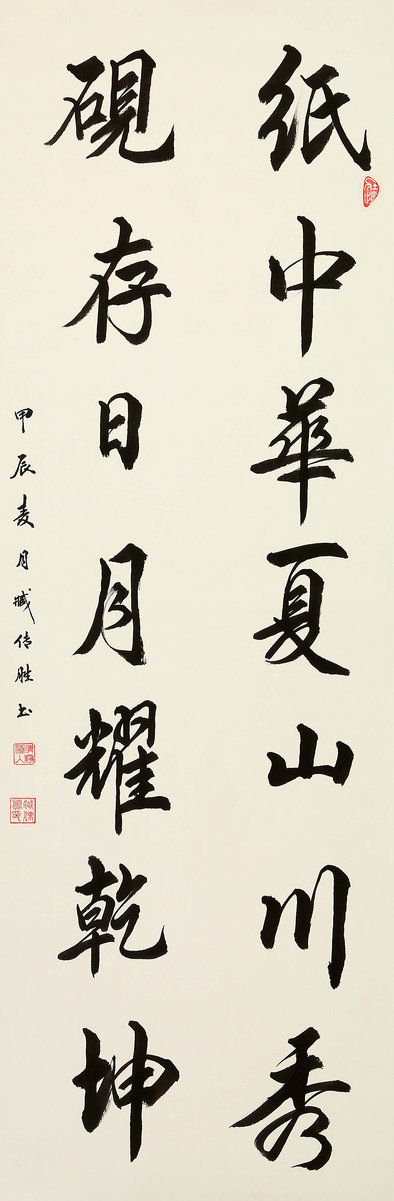 紙中華夏山川秀
硯存日月耀乾坤
甲辰麦月臧传胜书